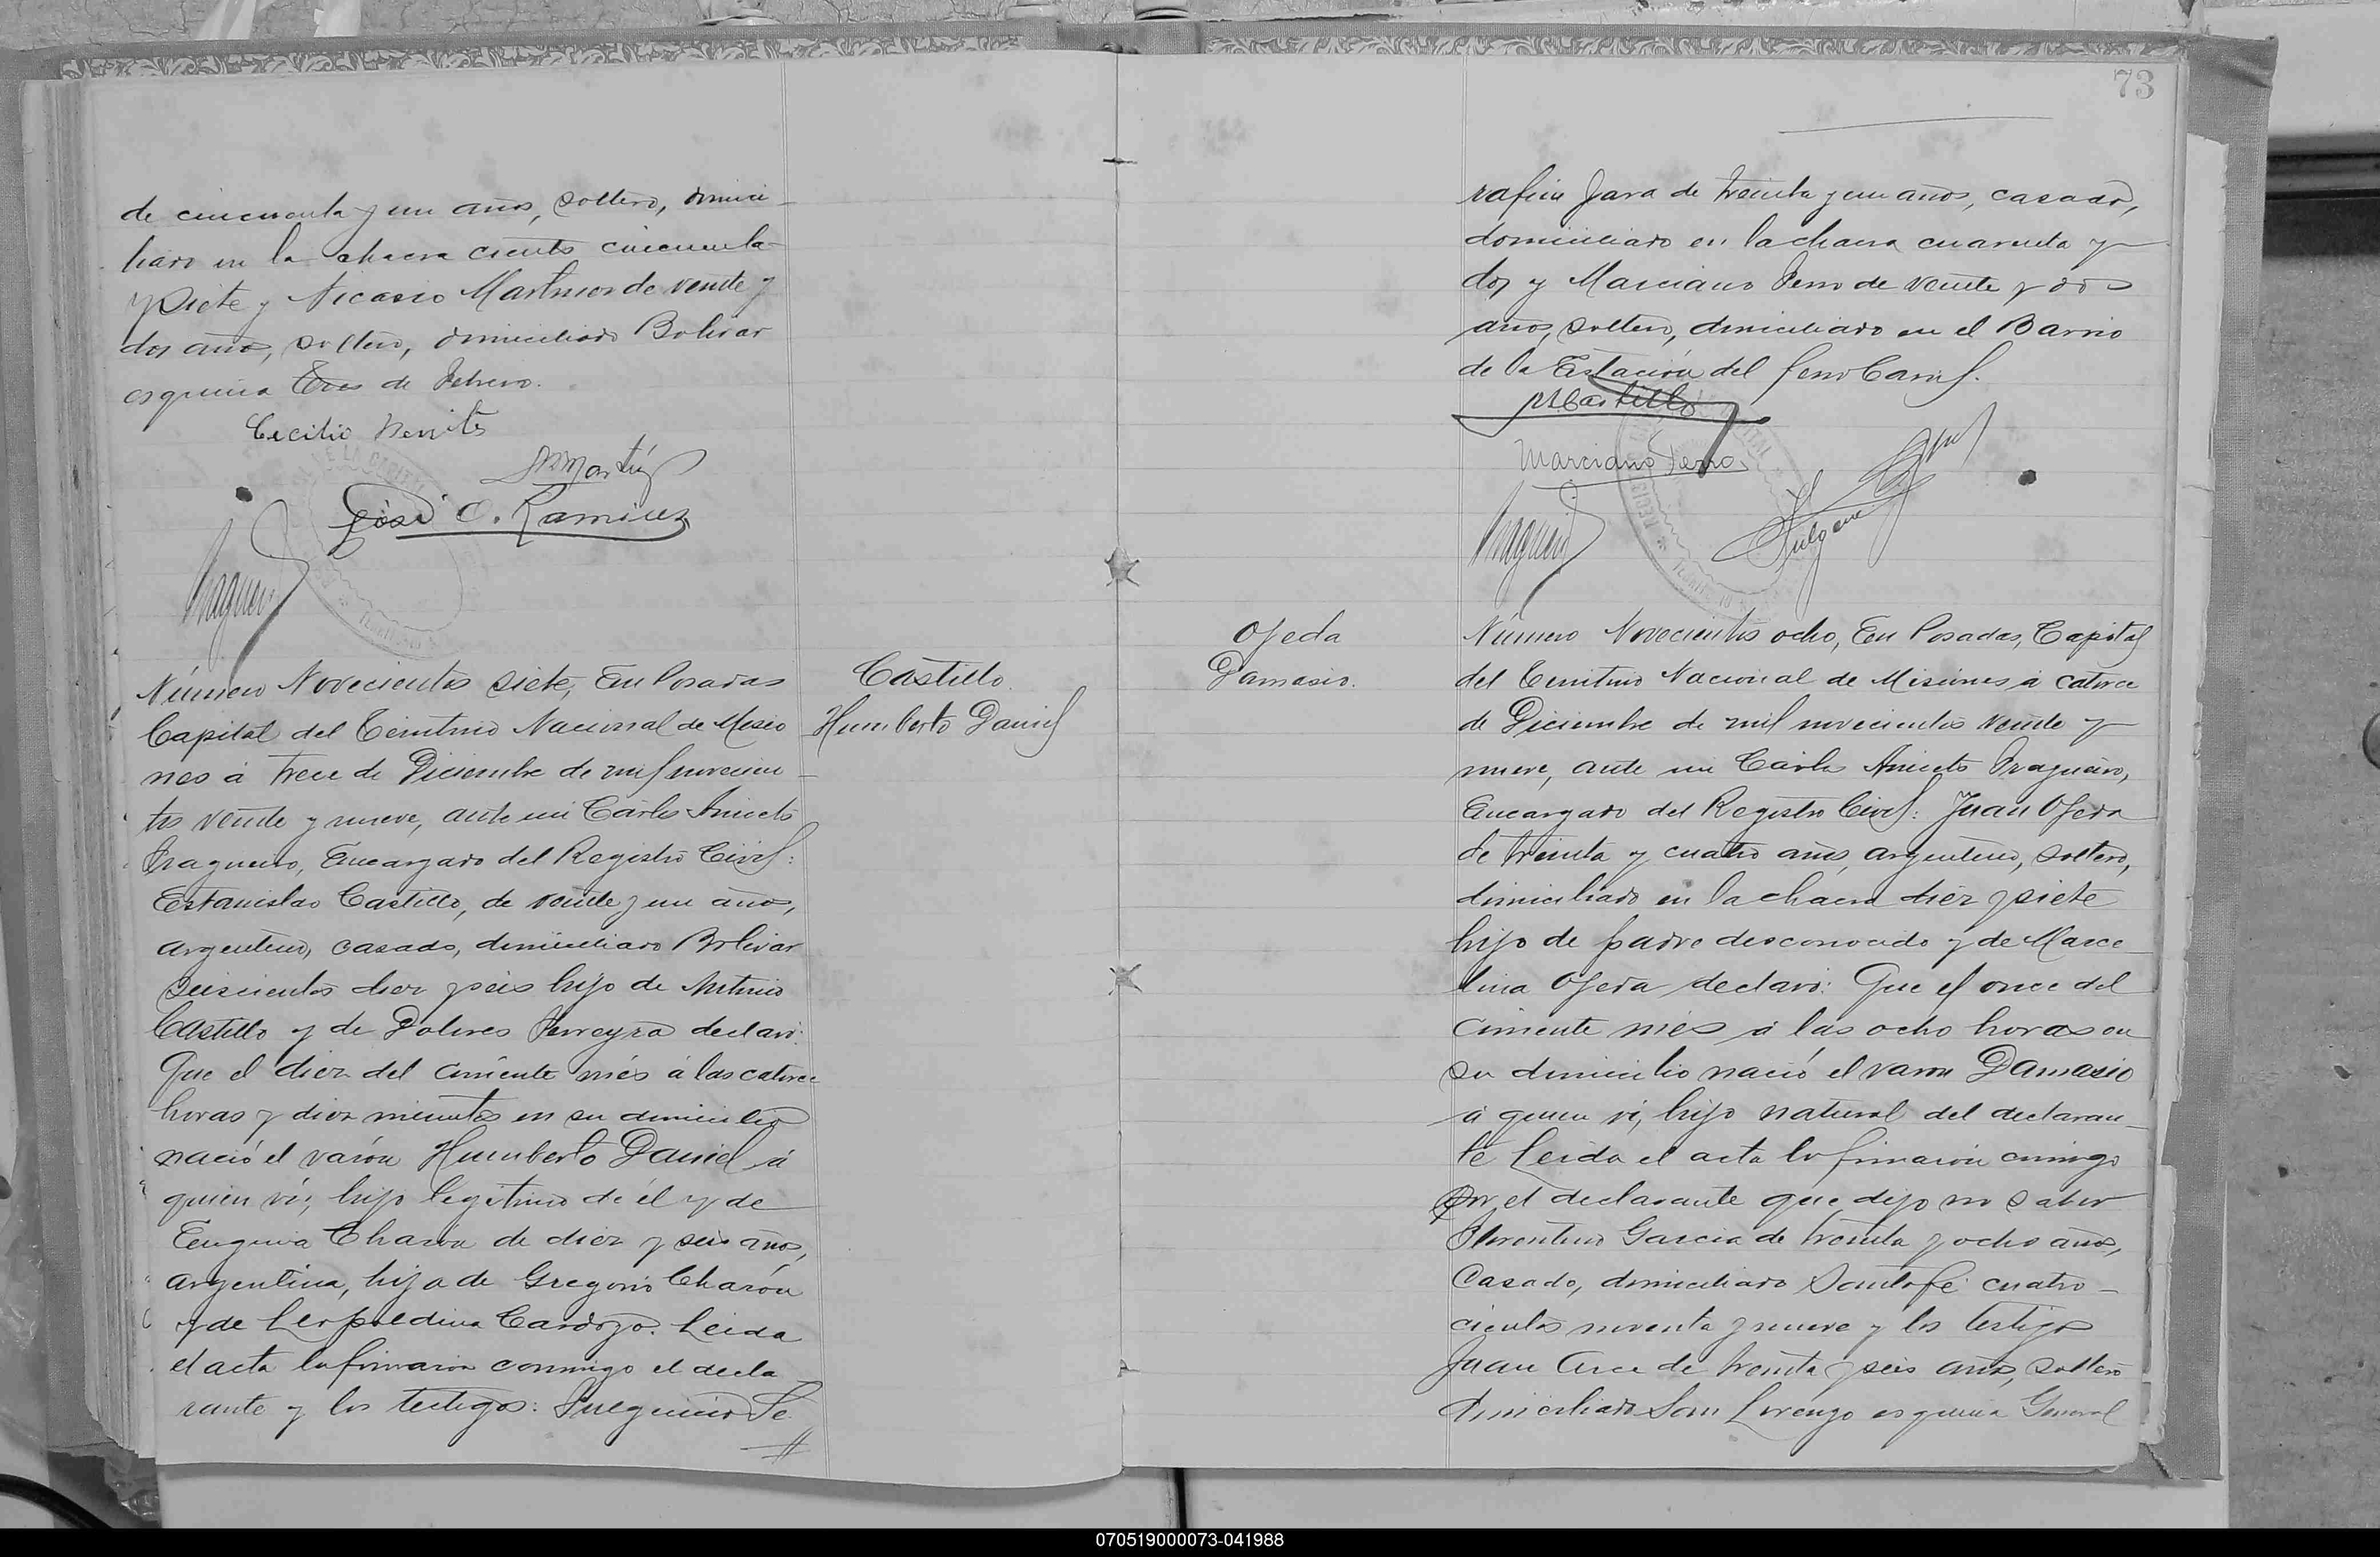 de cincuenta y un años, soltero, domici-
liado en la chacra ciento cincuenta
y siete y Nicasio Martinez de veinte y
dos años, soltero, domiciliado Bolivar
esquina Tres de Febrero.
Cecilio Benitez
NMartinez
José C. Ramirez
Fragueiro
Número Novecientos siete, En Posadas
Capital del Territorio Nacional de Misio
nes á trece de Diciembre de mil novecien-
tos veinte y nueve, ante mi Cárlos Aniceto
Fragueiro, Encargado del Registro Civil:
Estanislao Castillo, de veinte y un años,
argentino, casado, domiciliado Bolivar
seiscientos diez y seis hijo de Antonio
Castillo y de Dolores Ferreyra declaró:
Que el diez del corriente més á las catorce
horas y diez minutos en su domicilio
nació el varón Humberto Daniel á
quien ví; hijo legitimo de él y de
Eugenia Charón de diez y seis años,
argentina, hija de Gregorio Charón
y de Leopoldina Cardozo. Leida
el acta la firmaron conmigo el decla
rante y los testigos: Fulgencio Se
Castillo
Humberto Daniel
73
rafin Jara de treinta y un años, casado,
domiciliado en la chacra cuarenta y
dos y Marciano Ferro de veinte y dos
años, soltero, domiciliado en el Barrio
de la Estación del Ferro Carril.
Castillo
Marciano Ferro
Fulgencio
Fragueiro
Ojeda
Damasio.
Número Novecientos ocho, En Posadas, Capital
del Territorio Nacional de Misiones á catorce
de Diciembre de mil novecientos veinte y
nueve, ante mi Cárlos Aniceto Fragueiro,
Encargado del Registro Civil: Juan Ojeda
de treinta y cuatro años, argentino, soltero,
domiciliado en la chacra diez y siete
hijo de padre desconocido y de Marce-
lina Ojeda declaró: Que el once del
corriente més á las ocho horas en
su domicilio nació el varon Damasio
á quien ví, hijo natural del declaran-
te Leida el acta la firmaron conmigo
Por el declarante que dijo no saber
Florentino Garcia de treinta y ocho años,
Casado, domiciliado Santa fé cuatro-
cientos noventa y nueve y los testigos
Juan Arce de treinta y seis años, soltero
domiciliado San Lorenzo esquina General
070519000073-041988